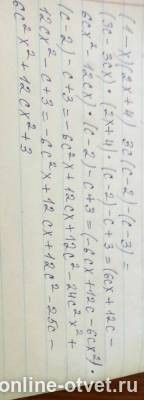 (1-x)(2x+4) 3c(c-2)-(c-3)=
(3c-3cx)·(2x+4)·(c-2)-c+3=(6cx+12c-
6cx²-12cx)·(c-2)-c+3=(-6cx+12c-6cx²)·
(c-2)-c+3=-6c²x+12cx+12c²-24c²x²+
12cx²-c+3=-6c²x+12cx+12c²-25c-
6c²x²+12cx²+3
online-otvet.ru